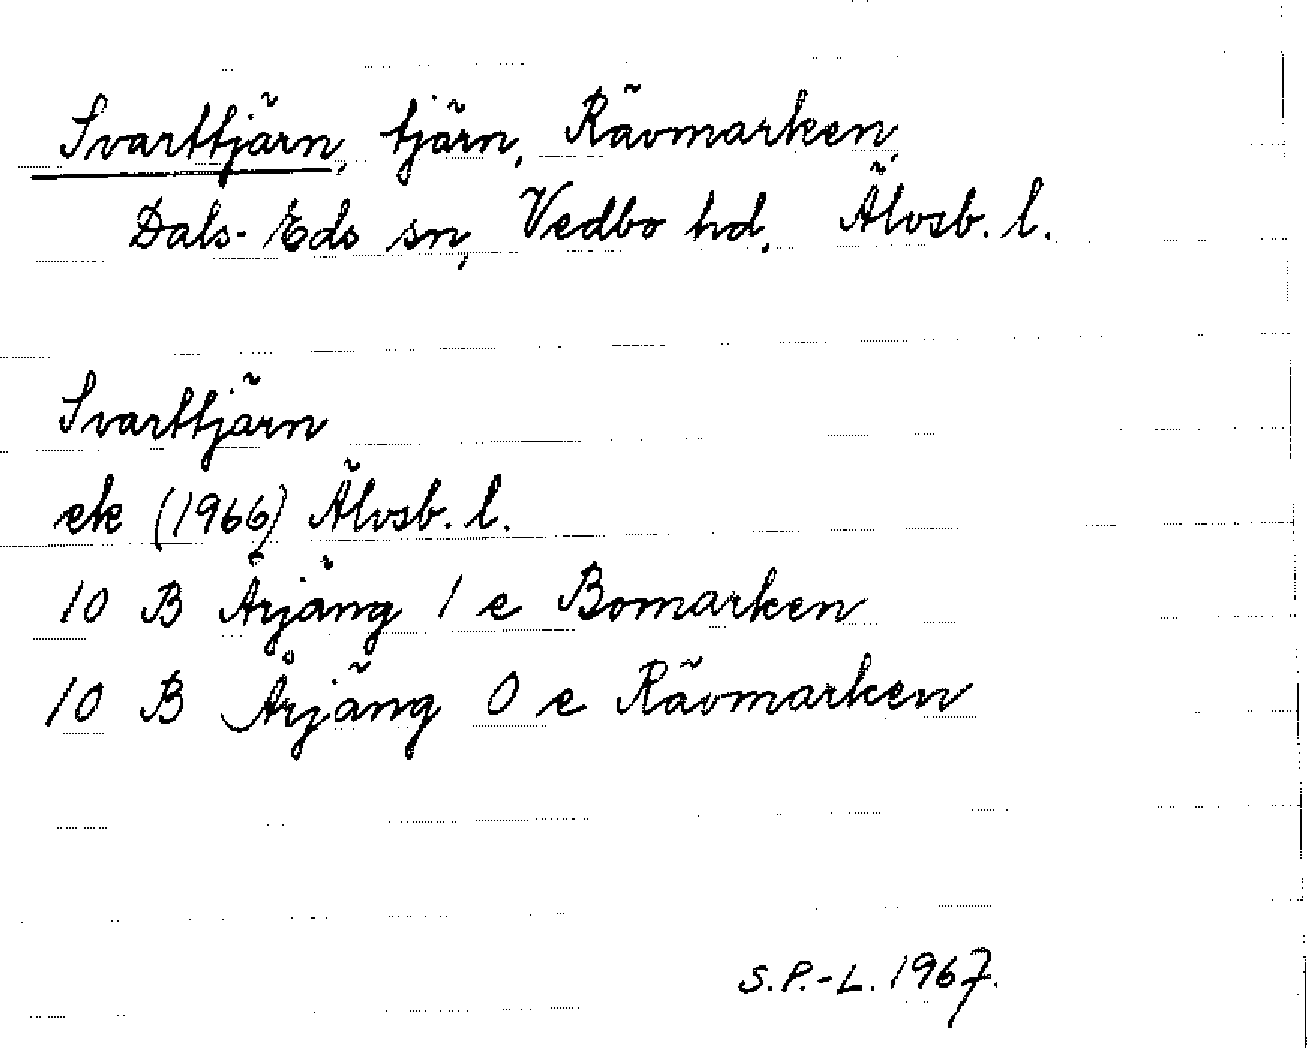 Svarttjärn, tjärn, Rävmarken,
Dals-Eds sn, Vedbo hd, Älvsb. l.
Svarttjärn
ek (1966) Älvsb. l.
10 B Årjäng 1 e Bomarken
10 B Årjäng 0 e Rävmarken
S.P.-L. 1967.